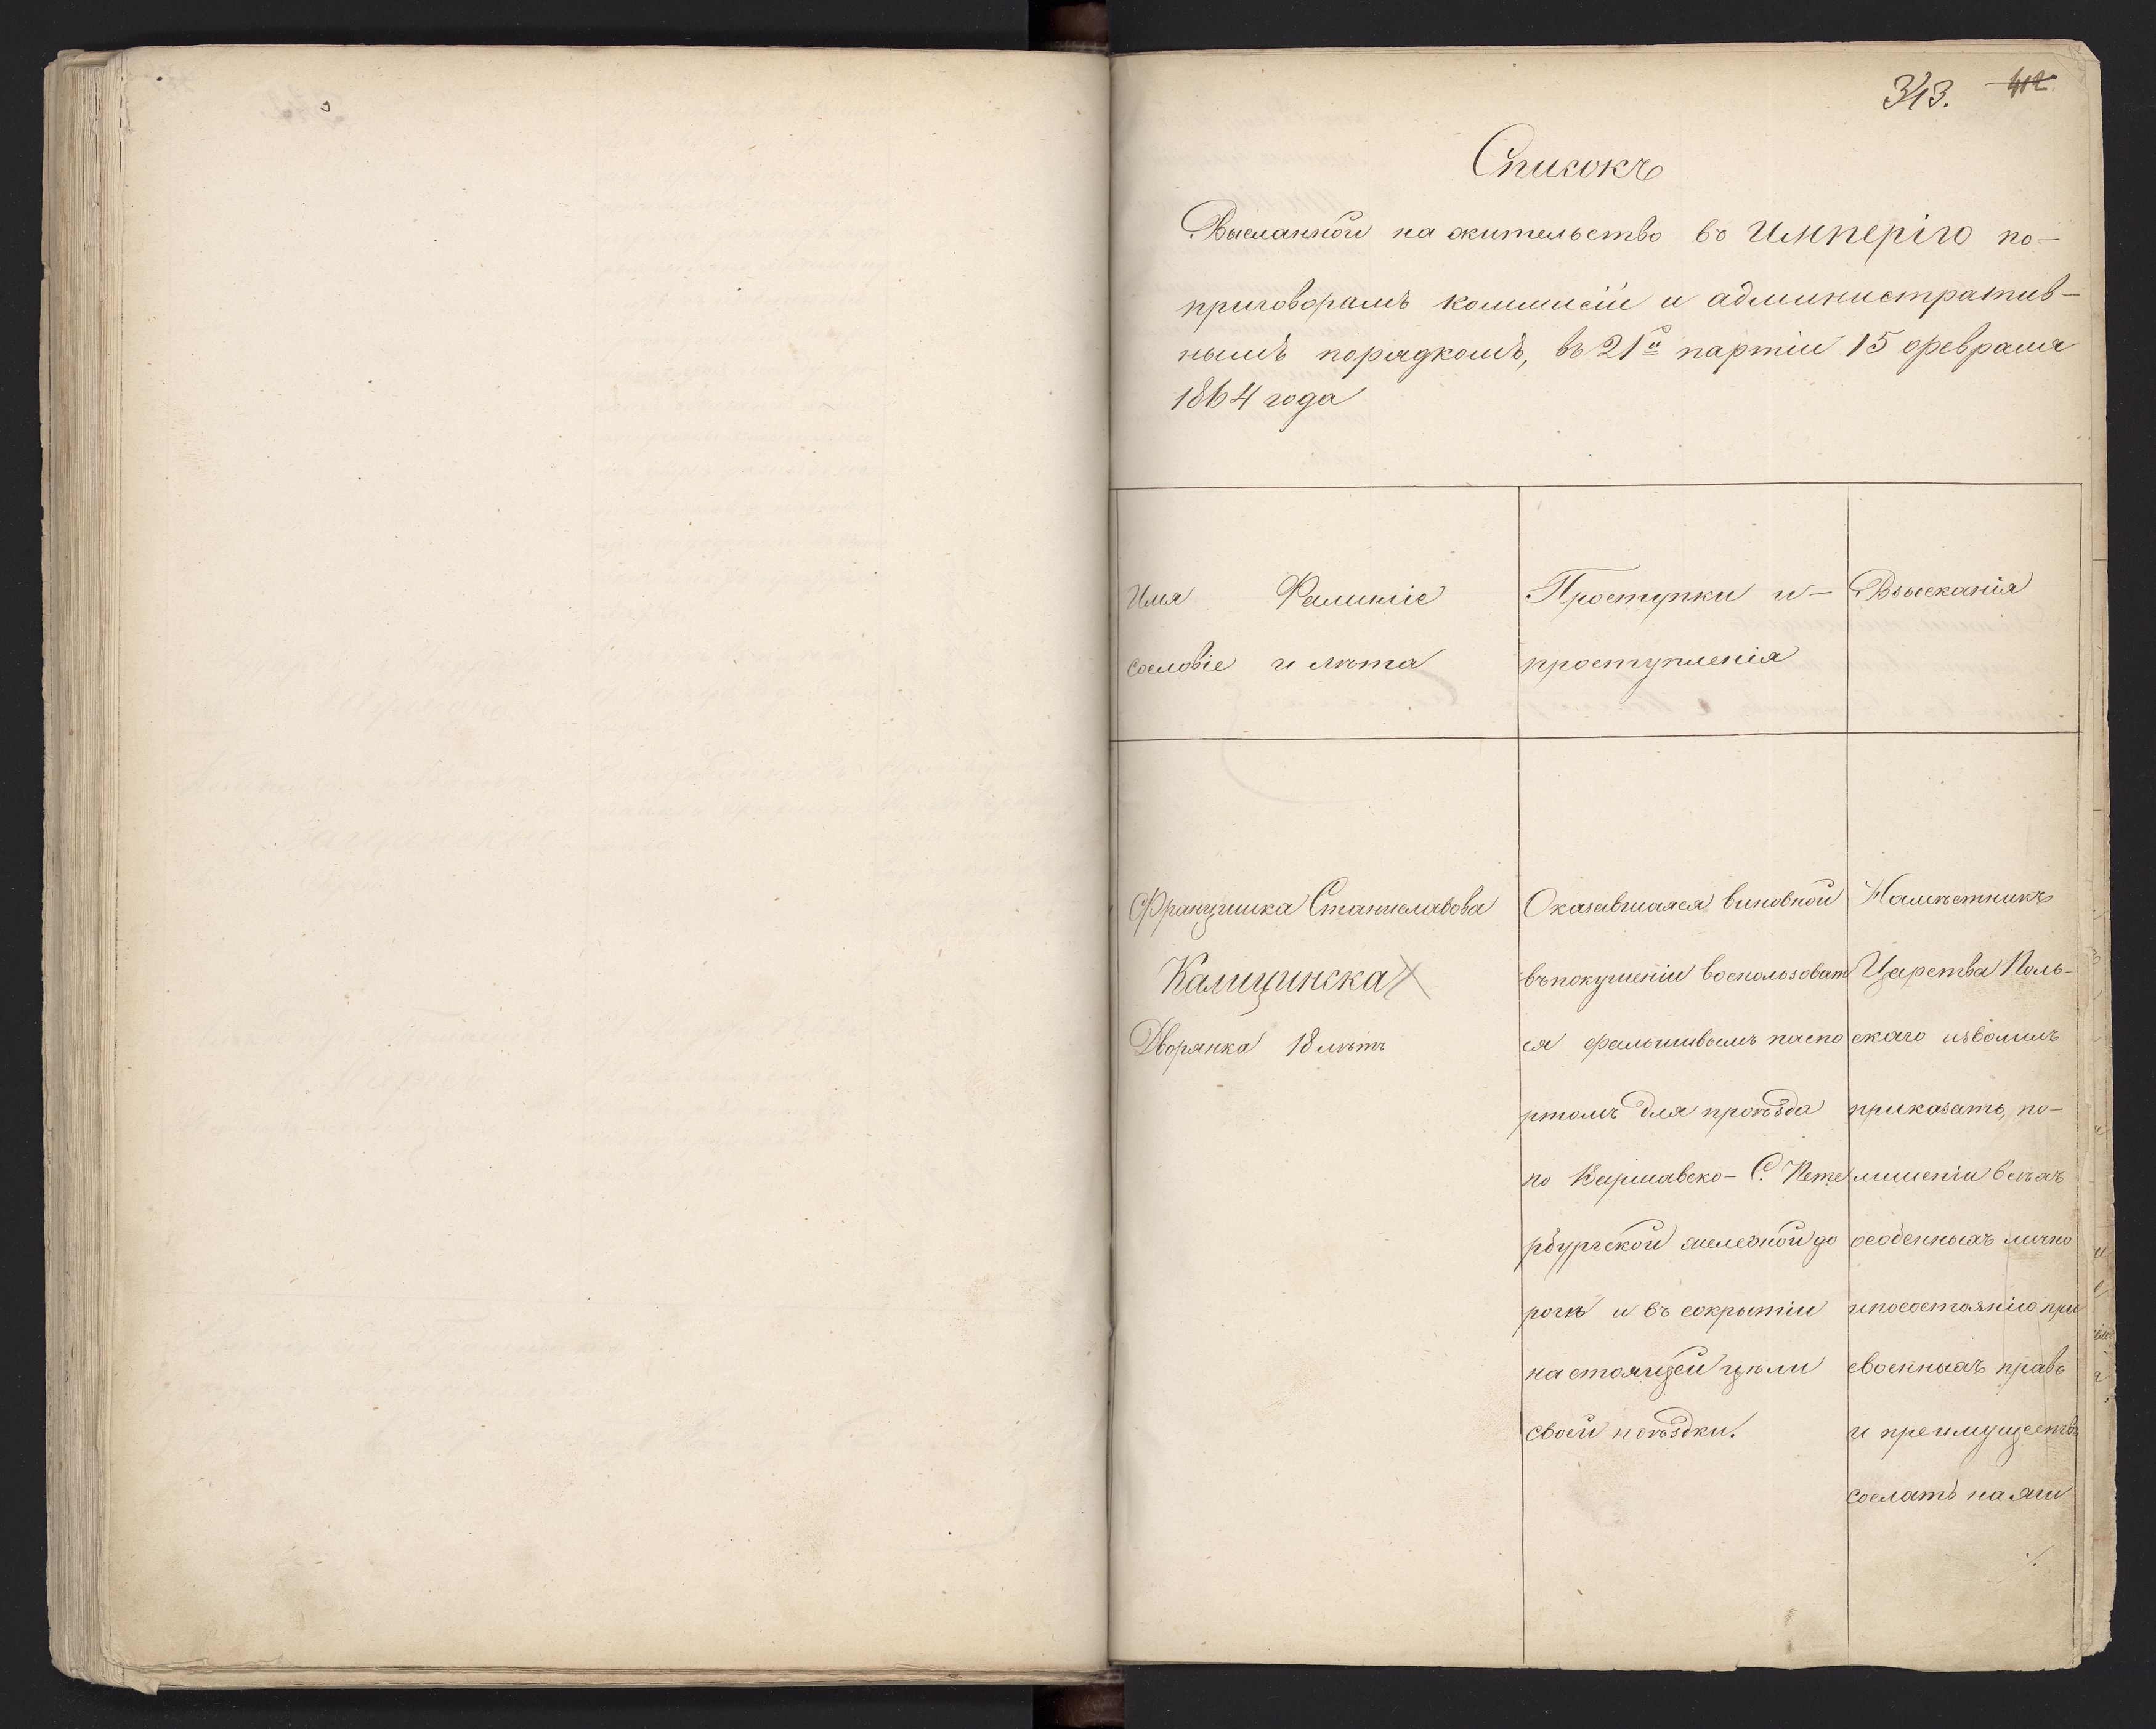 313. 412
Списокъ
Высланной на жительство въ Имперію по-
приговорамъ коммисіи и административ-
нымъ порядкомъ, въ 21й партіи 15 февраля
1864 года
Имя Фамиліе
сословіе и лѣта
Проступки и-
проступленія
Взысканія
Францишка Станиславова
Калицинска
Дворянка 18 лѣтъ
Оказавшаяся виновной
въ покушеніи воспользоват
ся фальшивымъ паспо
ртомъ для проѣзда
по Варшавско- С. Пете
рбургской желѣзной до
рогѣ и въ сокрытіи
настоящей цѣли
своей поѣздки.
Намѣстникъ
Царства Поль-
скаго изволилъ
приказать, по-
лишеніи всѣхъ
особенныхъ лично
и по состоянію при
своенныхъ правъ
и преимуществъ
сослать на жи
./.